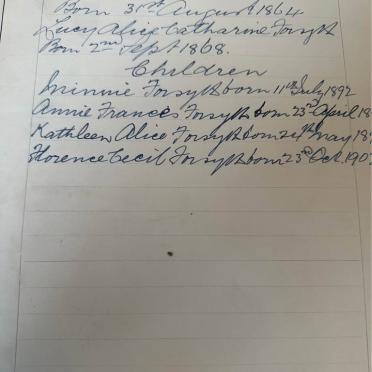 Born 31st August 1864
Lucy Alice Catharine Forsyth
Born 2nd Sept 1868.
Children
Minnie Forsyth born 11th July 1892
Annie Frances Forsyth born 23rd April 18
Kathleen Alice Forsyth born 24th May 189
Florence Cecil Forsyth born 23rd Oct. 190